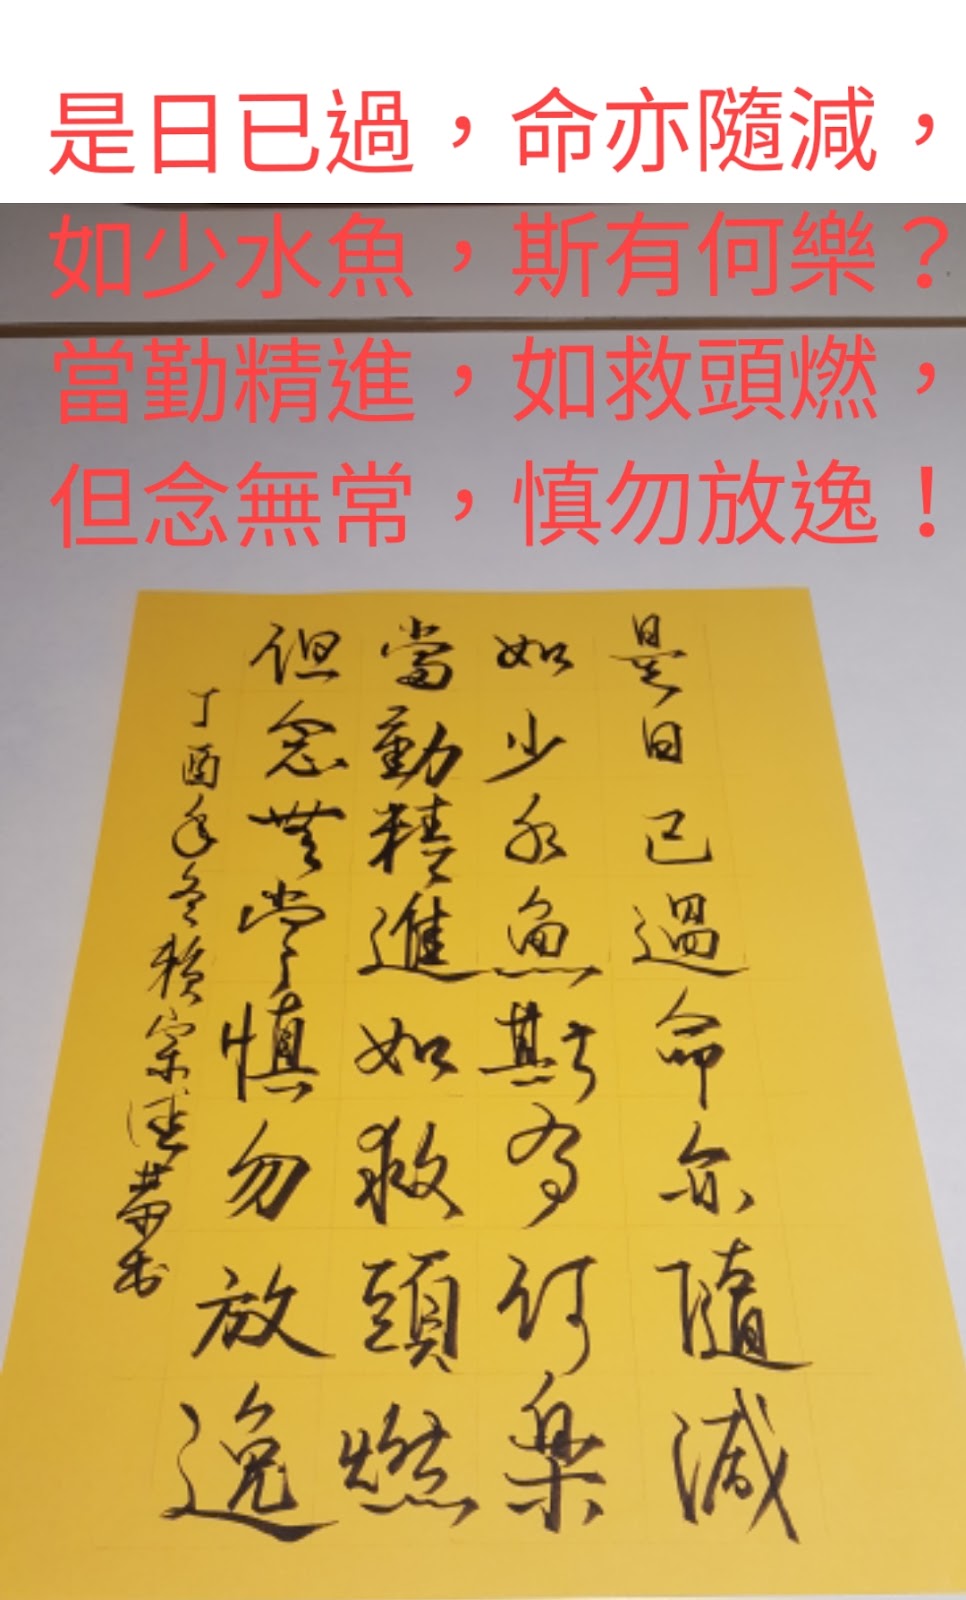 是日已過，命亦隨減，
如少水魚，斯有何樂？
當勤精進，如救頭燃，
但念無常，慎勿放逸！
是日已過命亦隨減
如少水魚斯有何樂
當勤精進如救頭燃
但念無常慎勿放逸
丁酉年冬賴宗陸恭書